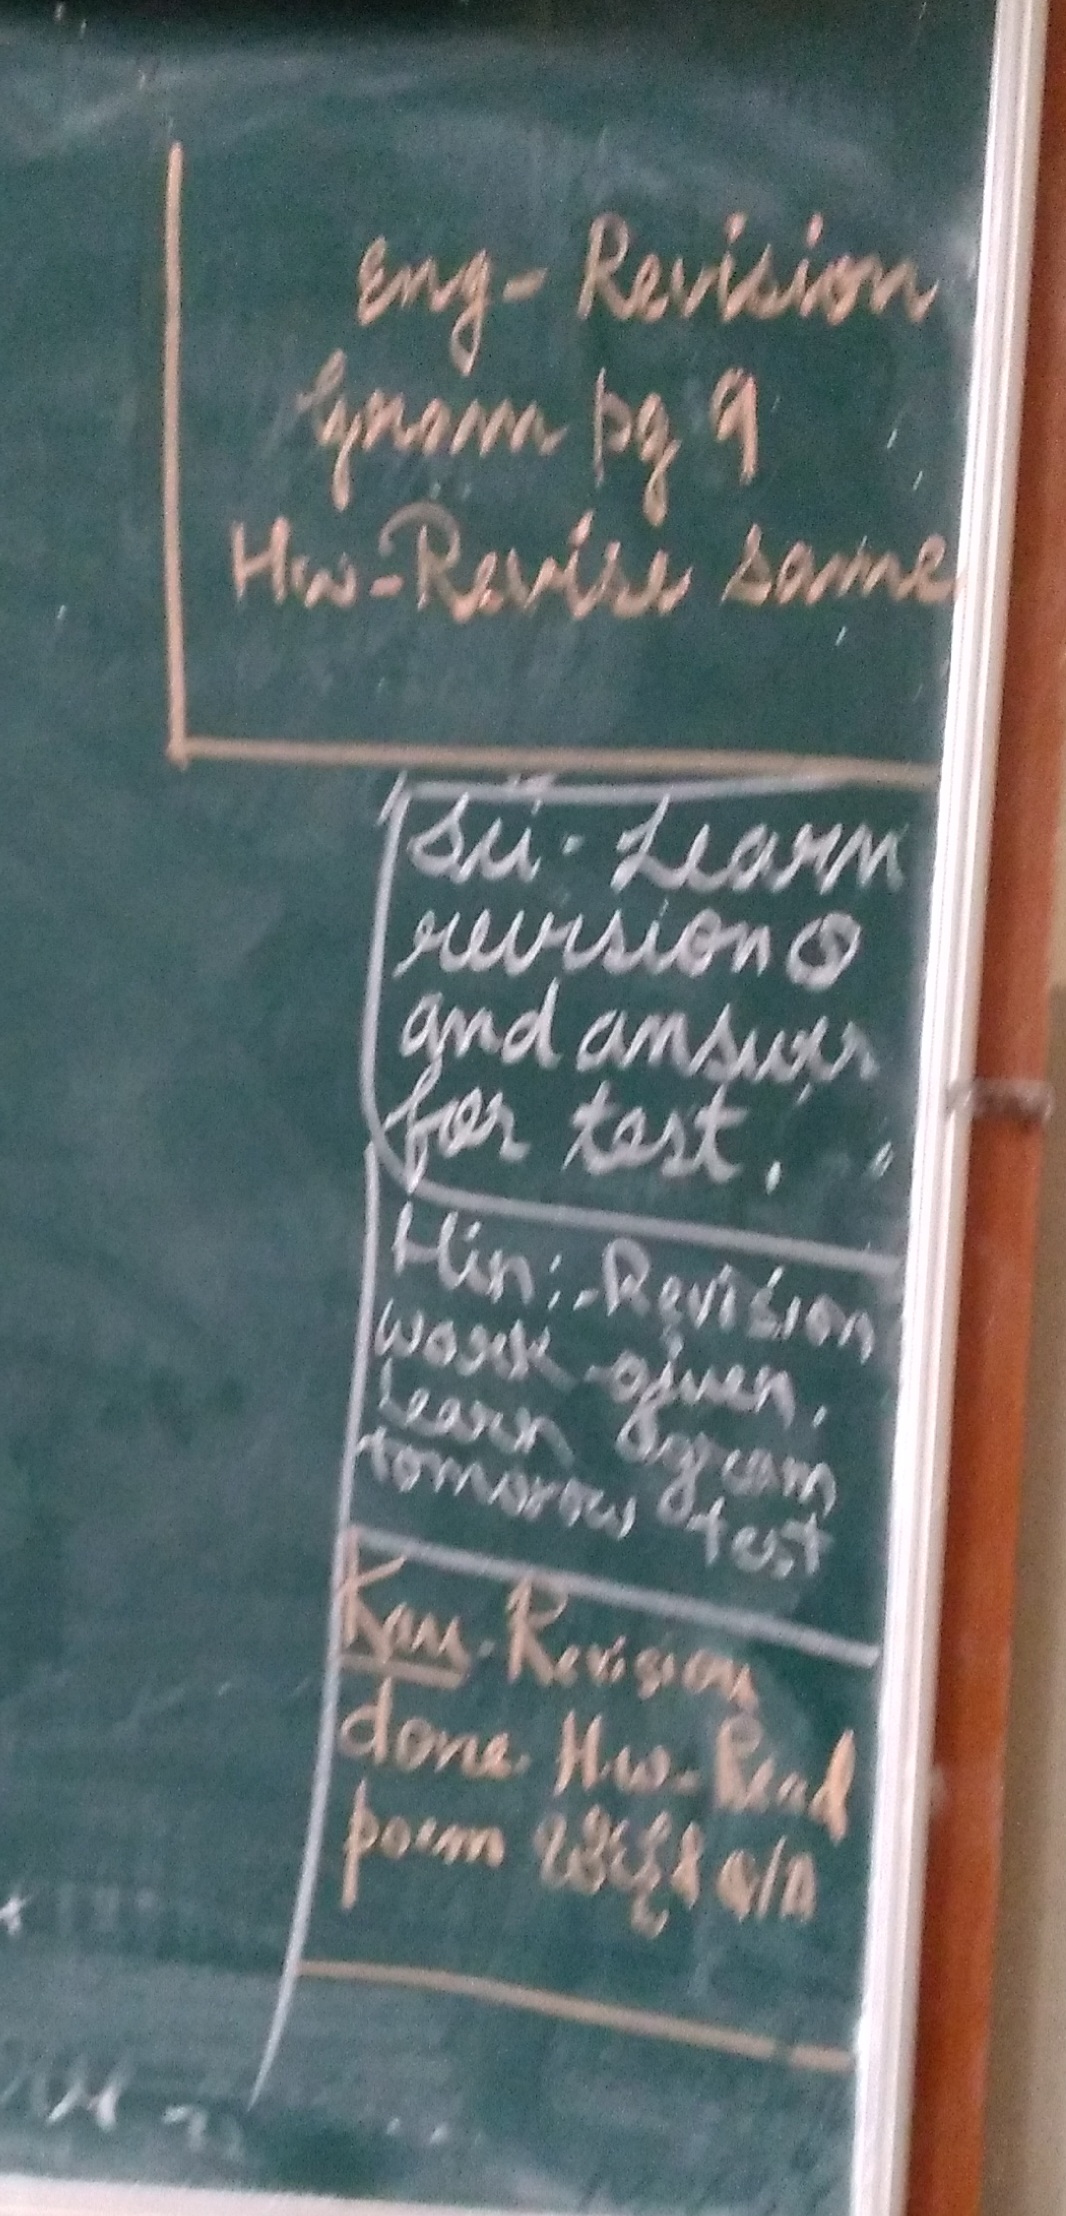 Eng- Revision
Gram pg 9
Hw-Revise same
Sci- Learn
revision Q
and answer
for test.
Hin:-Revision
work given.
Learn gram
tomorrow test
Kan-Revision
done. Hw-Read
poem & Q/A